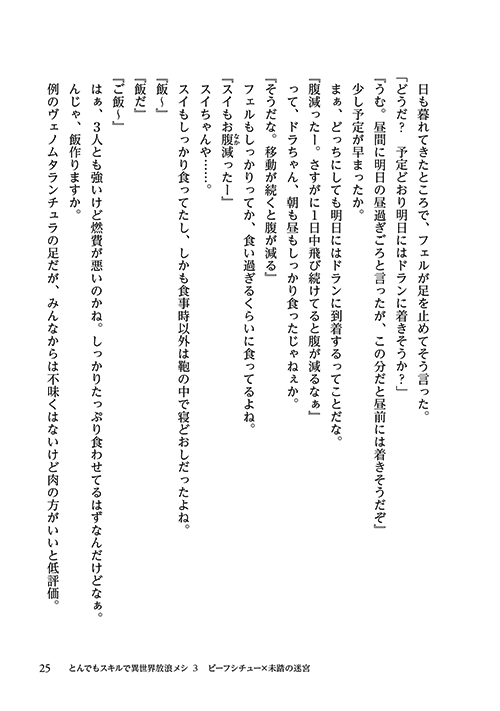 日も暮れてきたところで、フェルが足を止めてそう言った。
「どうだ？　予定どおり明日にはドランに着きそうか？」
『うむ。昼間に明日の昼過ぎごろと言ったが、この分だと昼前には着きそうだぞ』
少し予定が早まったか。
まぁ、どっちにしても明日にはドランに到着するってことだな。
『腹減ったー。さすがに１日中飛び続けてると腹が減るなぁ』
って、ドラちゃん、朝も昼もしっかり食ったじゃねぇか。
『そうだな。移動が続くと腹が減る』
フェルもしっかりってか、食い過ぎるくらいに食ってるよね。
『スイもお腹減ったー』
スイちゃんや……。
スイもしっかり食ってたし、しかも食事時以外は鞄の中で寝どおしだったよね。
『飯～』
『飯だ』
『ご飯～』
はぁ、３人とも強いけど燃費が悪いのかね。しっかりたっぷり食わせてるはずなんだけどなぁ。
んじゃ、飯作りますか。
例のヴェノムタランチュラの足だが、みんなからは不味くはないけど肉の方がいいと低評価。
25　とんでもスキルで異世界放浪メシ 3　ビーフシチュー×未踏の迷宮